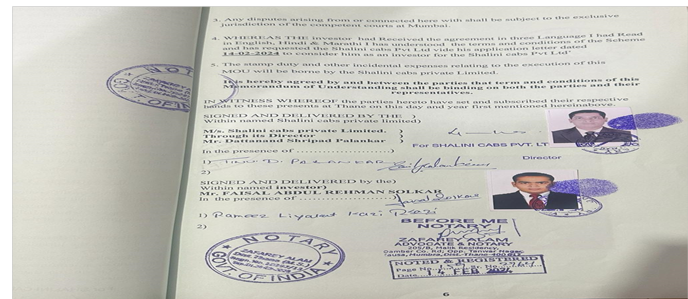 3. Any disputes arising from or connected here with shall be subject to the exclusive
jurisdiction of the competent courts at Mumbai.
4. WHEREAS THE investor had Received the agreement in three Language I had Read
in English, Hindi & Marathi I has understood the terms and conditions of the Scheme
and has requested the Shalini cabs Pvt Ltd vide his application letter dated
14-02-2024 to consider him as an investor in the Shalini cabs Pvt Ltd"
5. The stamp duty and other incidental expenses relating to the execution of this
MOU will be borne by the Shalini cabs private Limited.
It is hereby agreed by and between the parties that term and conditions of this
Memorandum of Understanding shall be binding on both the parties and their
representatives.
IN WITNESS WHEREOF the parties hereto have set and subscribed their respective
hands to these presents at Thane on this day and year first mentioned hereinabove.
SIGNED AND DELIVERED BY THE )
Within named Shalini cabs private limited)
M/s. Shalini cabs private Limited. )
Through its Director )
Mr. Dattanand Shripad Palankar )
For SHALINI CABS PVT. LT
Director
In the presence of ........................
1)
2)
SIGNED AND DELIVERED by the)
Within named investor)
Mr. FAISAL ABDUL REHMAN SOLKAR
In the presence of ........................
1)
2)
BEFORE ME
NOTARY
ZAFAREY ALAM
ADVOCATE & NOTARY
205/B, Malik Residency,
NOTARY
ZAFAREY ALAM
GOVT. OF INDIA
NOTED & REGISTERED
14 FEB
6